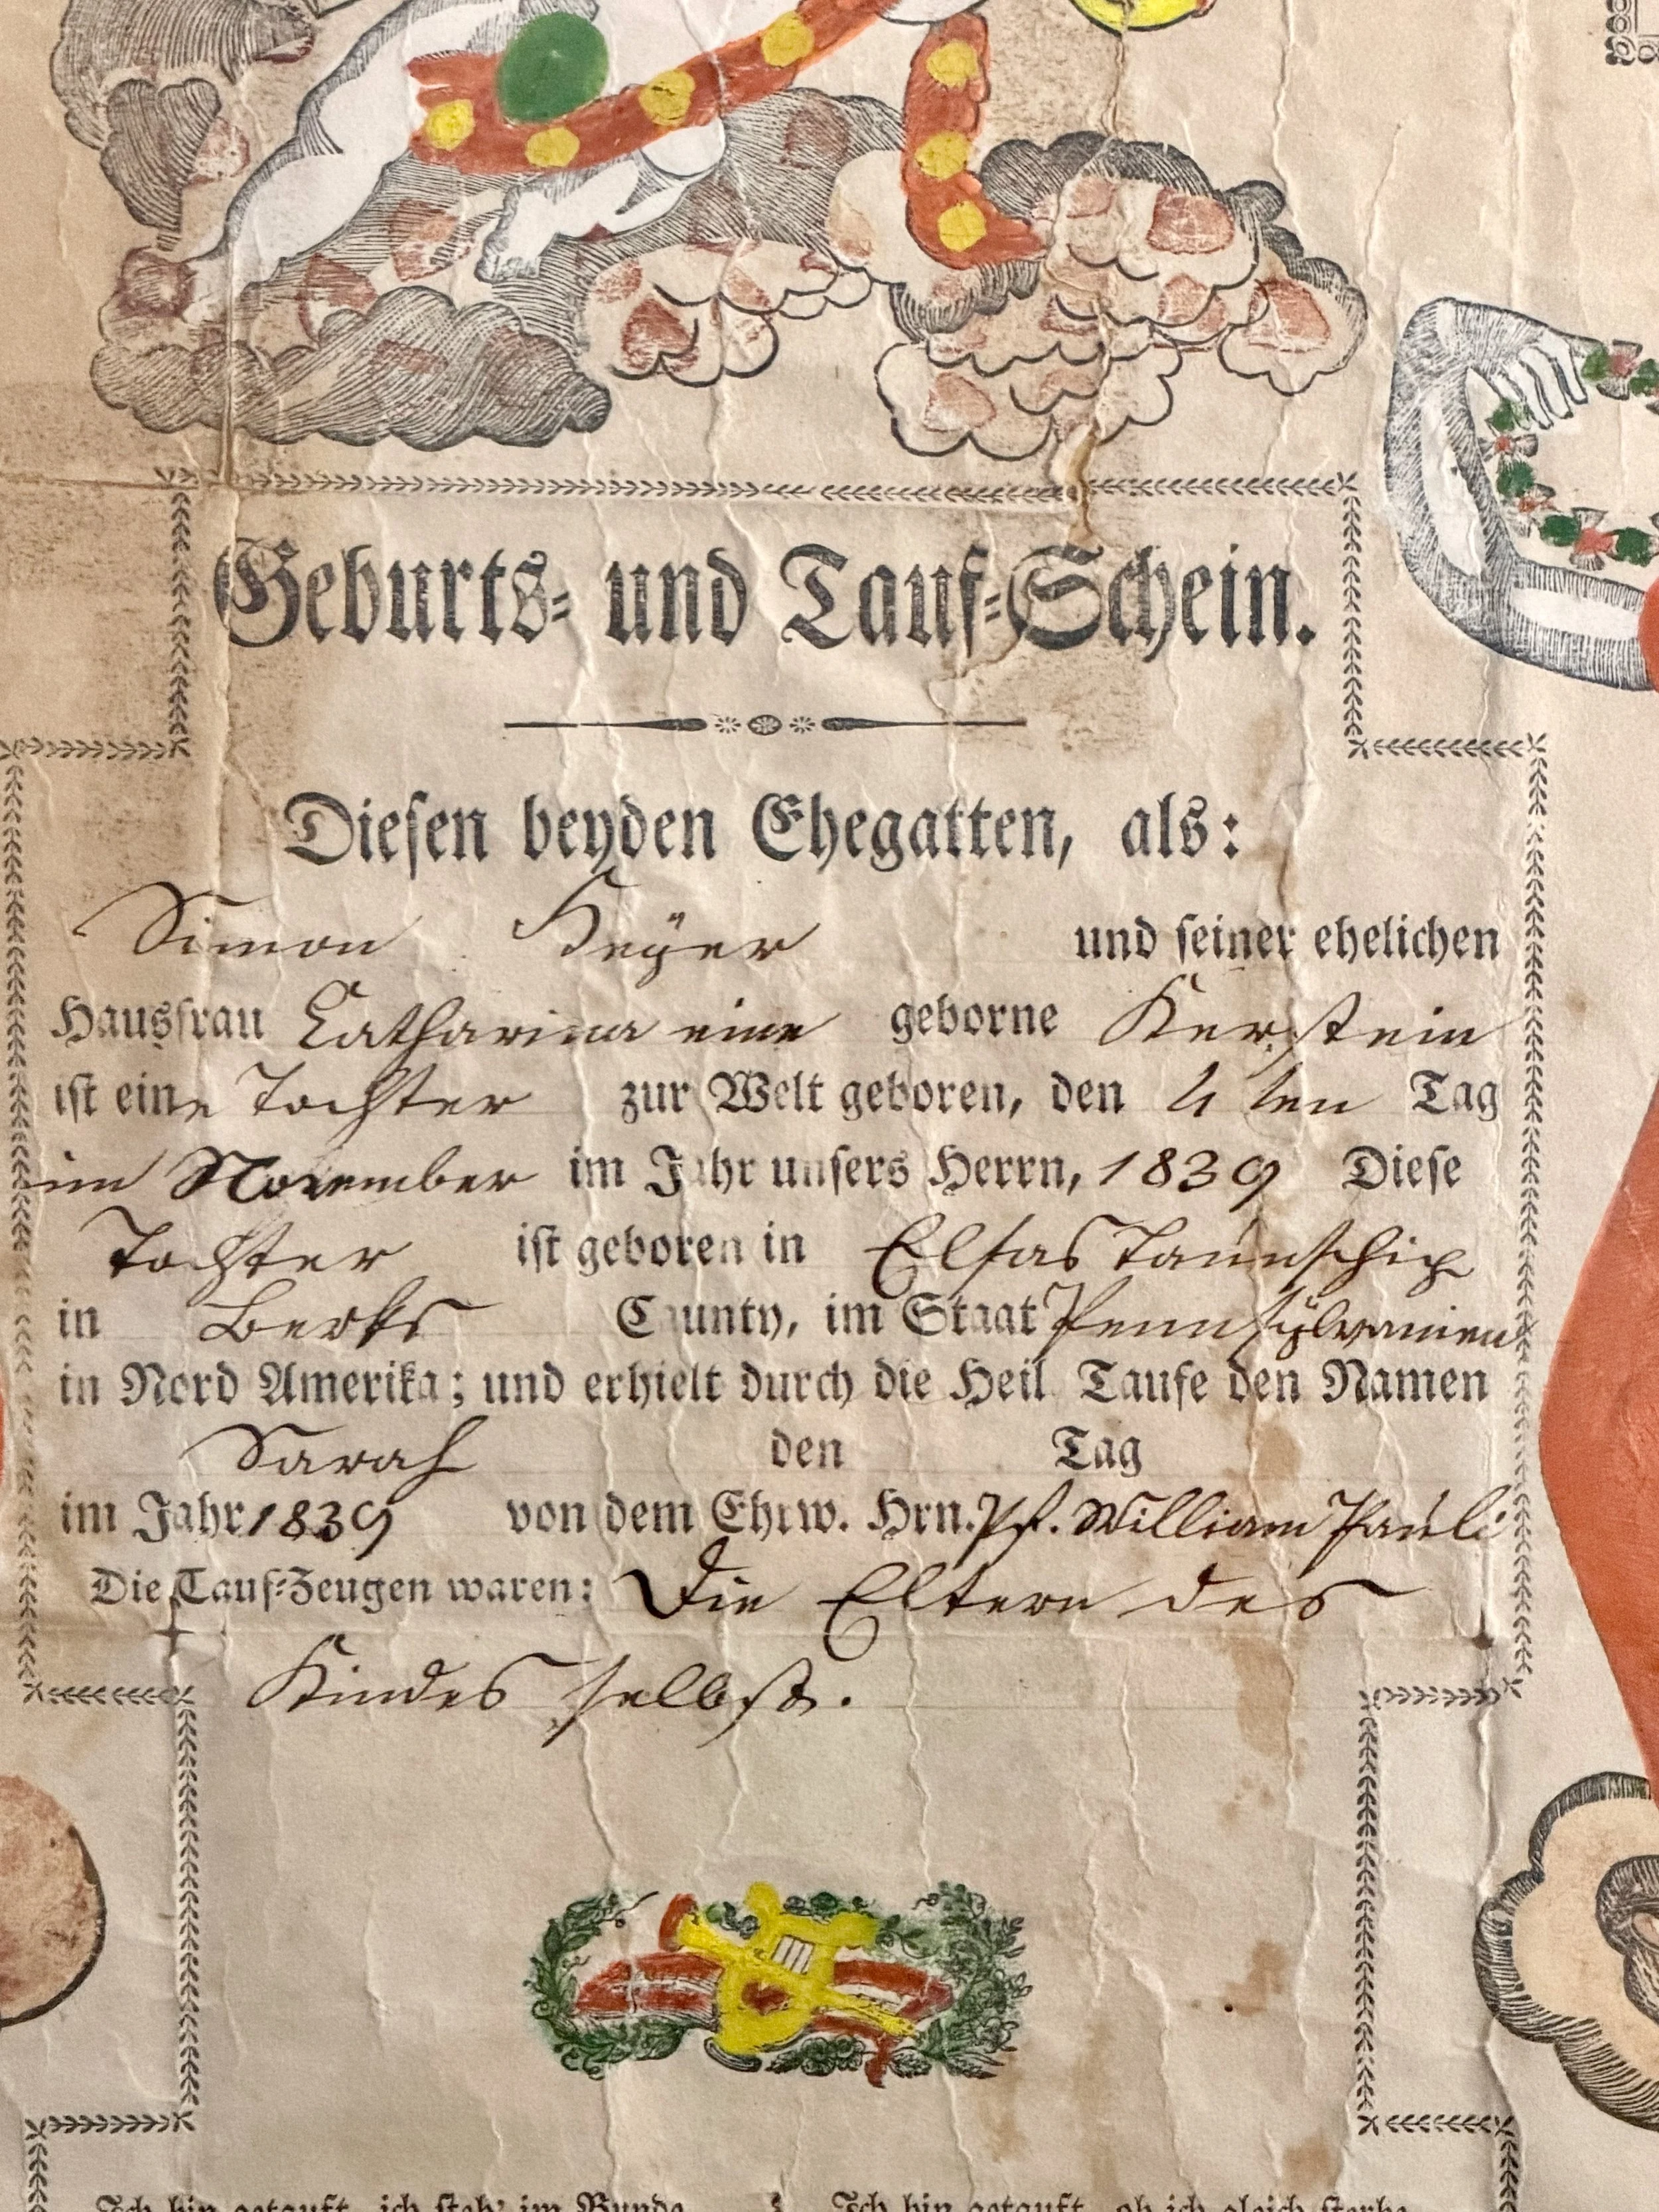 Geburts- und Tauf-Schein.
Diesen beyden Ehegatten, als:
Simon Heÿer und seiner ehelichen
Hausfrau Catharina eine geborne Kerstein
ist eine Tochter zur Welt geboren, den 4ten Tag
im November im Jahr unsers Herrn, 1839 Diese
Tochter ist geboren in Elsas Taunschip
in Berks Caunty, im Staat Pennsÿlvanien
in Nord Amerika; und erhielt durch die Heil. Taufe den Namen
Sarah den Tag
im Jahr 1839 von dem Ehrw. Hrn. Pf. William Pauli
Die Tauf-Zeugen waren: Die Eltern des
Kindes selbst.
Ich bin getauft, ich steh' im Bunde Ich bin getauft, ob ich gleich sterbe